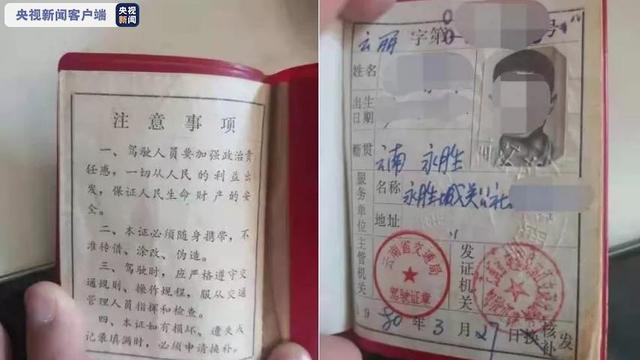 央视新闻
央视新闻客户端
注意事项
一、驾驶人员要加强政治责
任感，一切从人民的利益出
发，保证人民生命财产的安
全。
二、本证必须随身携带，不
准转借、涂改、伪造。
三、驾驶时，应严格遵守交
通规则、操作规程，服从交通
管理人员指挥和检查。
四、本证如有损坏、遗失或
记录填满时，必须申请换补。
云丽字第 号
姓名
出生
日期
籍贯 云南 永胜
服务单位
名称 永胜城关公社
地址
主管机关
云南省交通局
驾驶证章
发证机关
1980年3月27日换补 核发